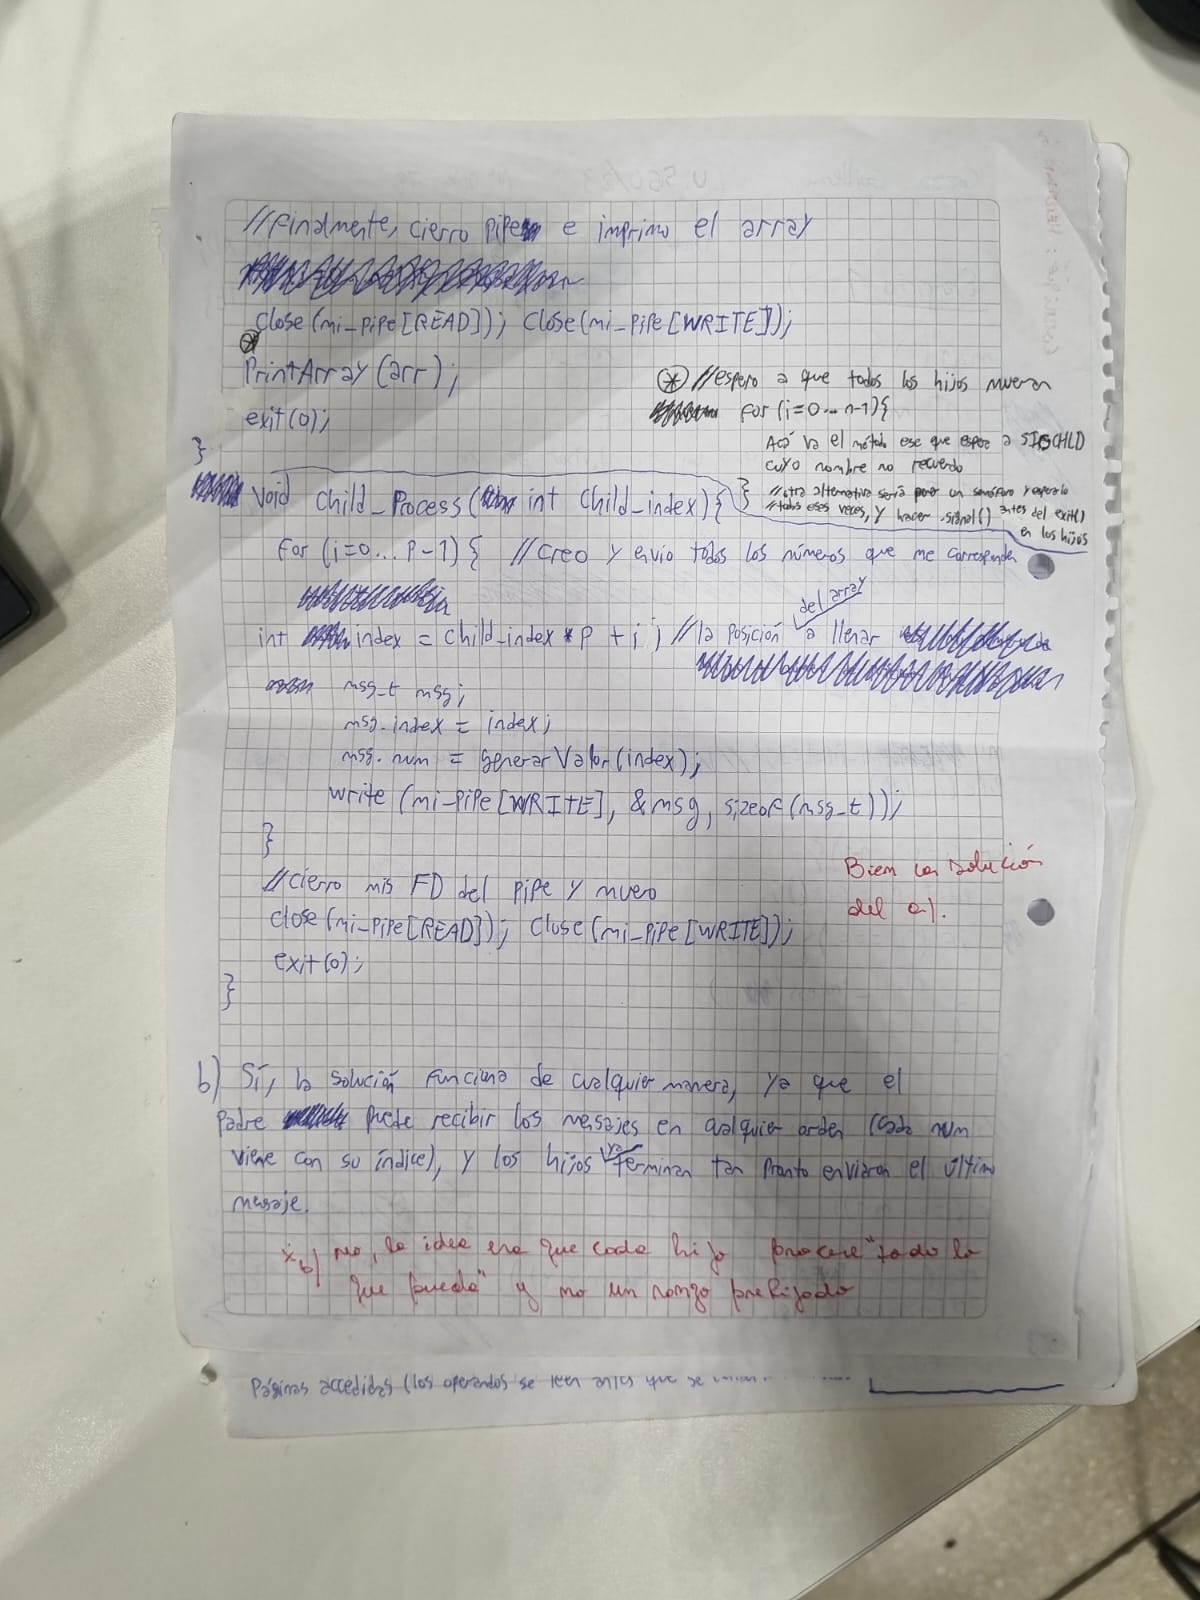 //finalmente, cierro pipe e imprimo el array
close(mi_pipe[READ]); close(mi_pipe[WRITE]);
⊛
PrintArray(arr);
exit(0);
}
⊛ //espero a que todos los hijos mueran
for (i=0...n-1){
Acá va el método ese que espera a SIGCHLD
cuyo nombre no recuerdo
}
//otra alternativa sería poner un semáforo y esperarlo
//todas esas veces, y hacer .signal() antes del exit()
en los hijos
void child_Process(int child_index){
for (i=0... p-1){ //creo y envio todos los números que me corresponden
int index = child_index * p + i; //la posición del array a llenar
msg_t msg;
msg.index = index;
msg.num = generarValor(index);
write (mi_pipe[WRITE], &msg, sizeof(msg_t));
}
//cierro mis FD del pipe y muero
close(mi_pipe[READ]); close(mi_pipe[WRITE]);
exit(0);
}
Bien la solución
del a).
b) Sí, la solución funciona de cualquier manera, ya que el
padre puede recibir los mensajes en cualquier orden (cada num
viene con su índice), y los hijos ya terminan tan pronto enviaron el último
mensaje.
b) no, la idea era que cada hijo procese "todo lo
que pueda" y no un rango prefijado
Páginas accedidas (los operandos se leen antes que se